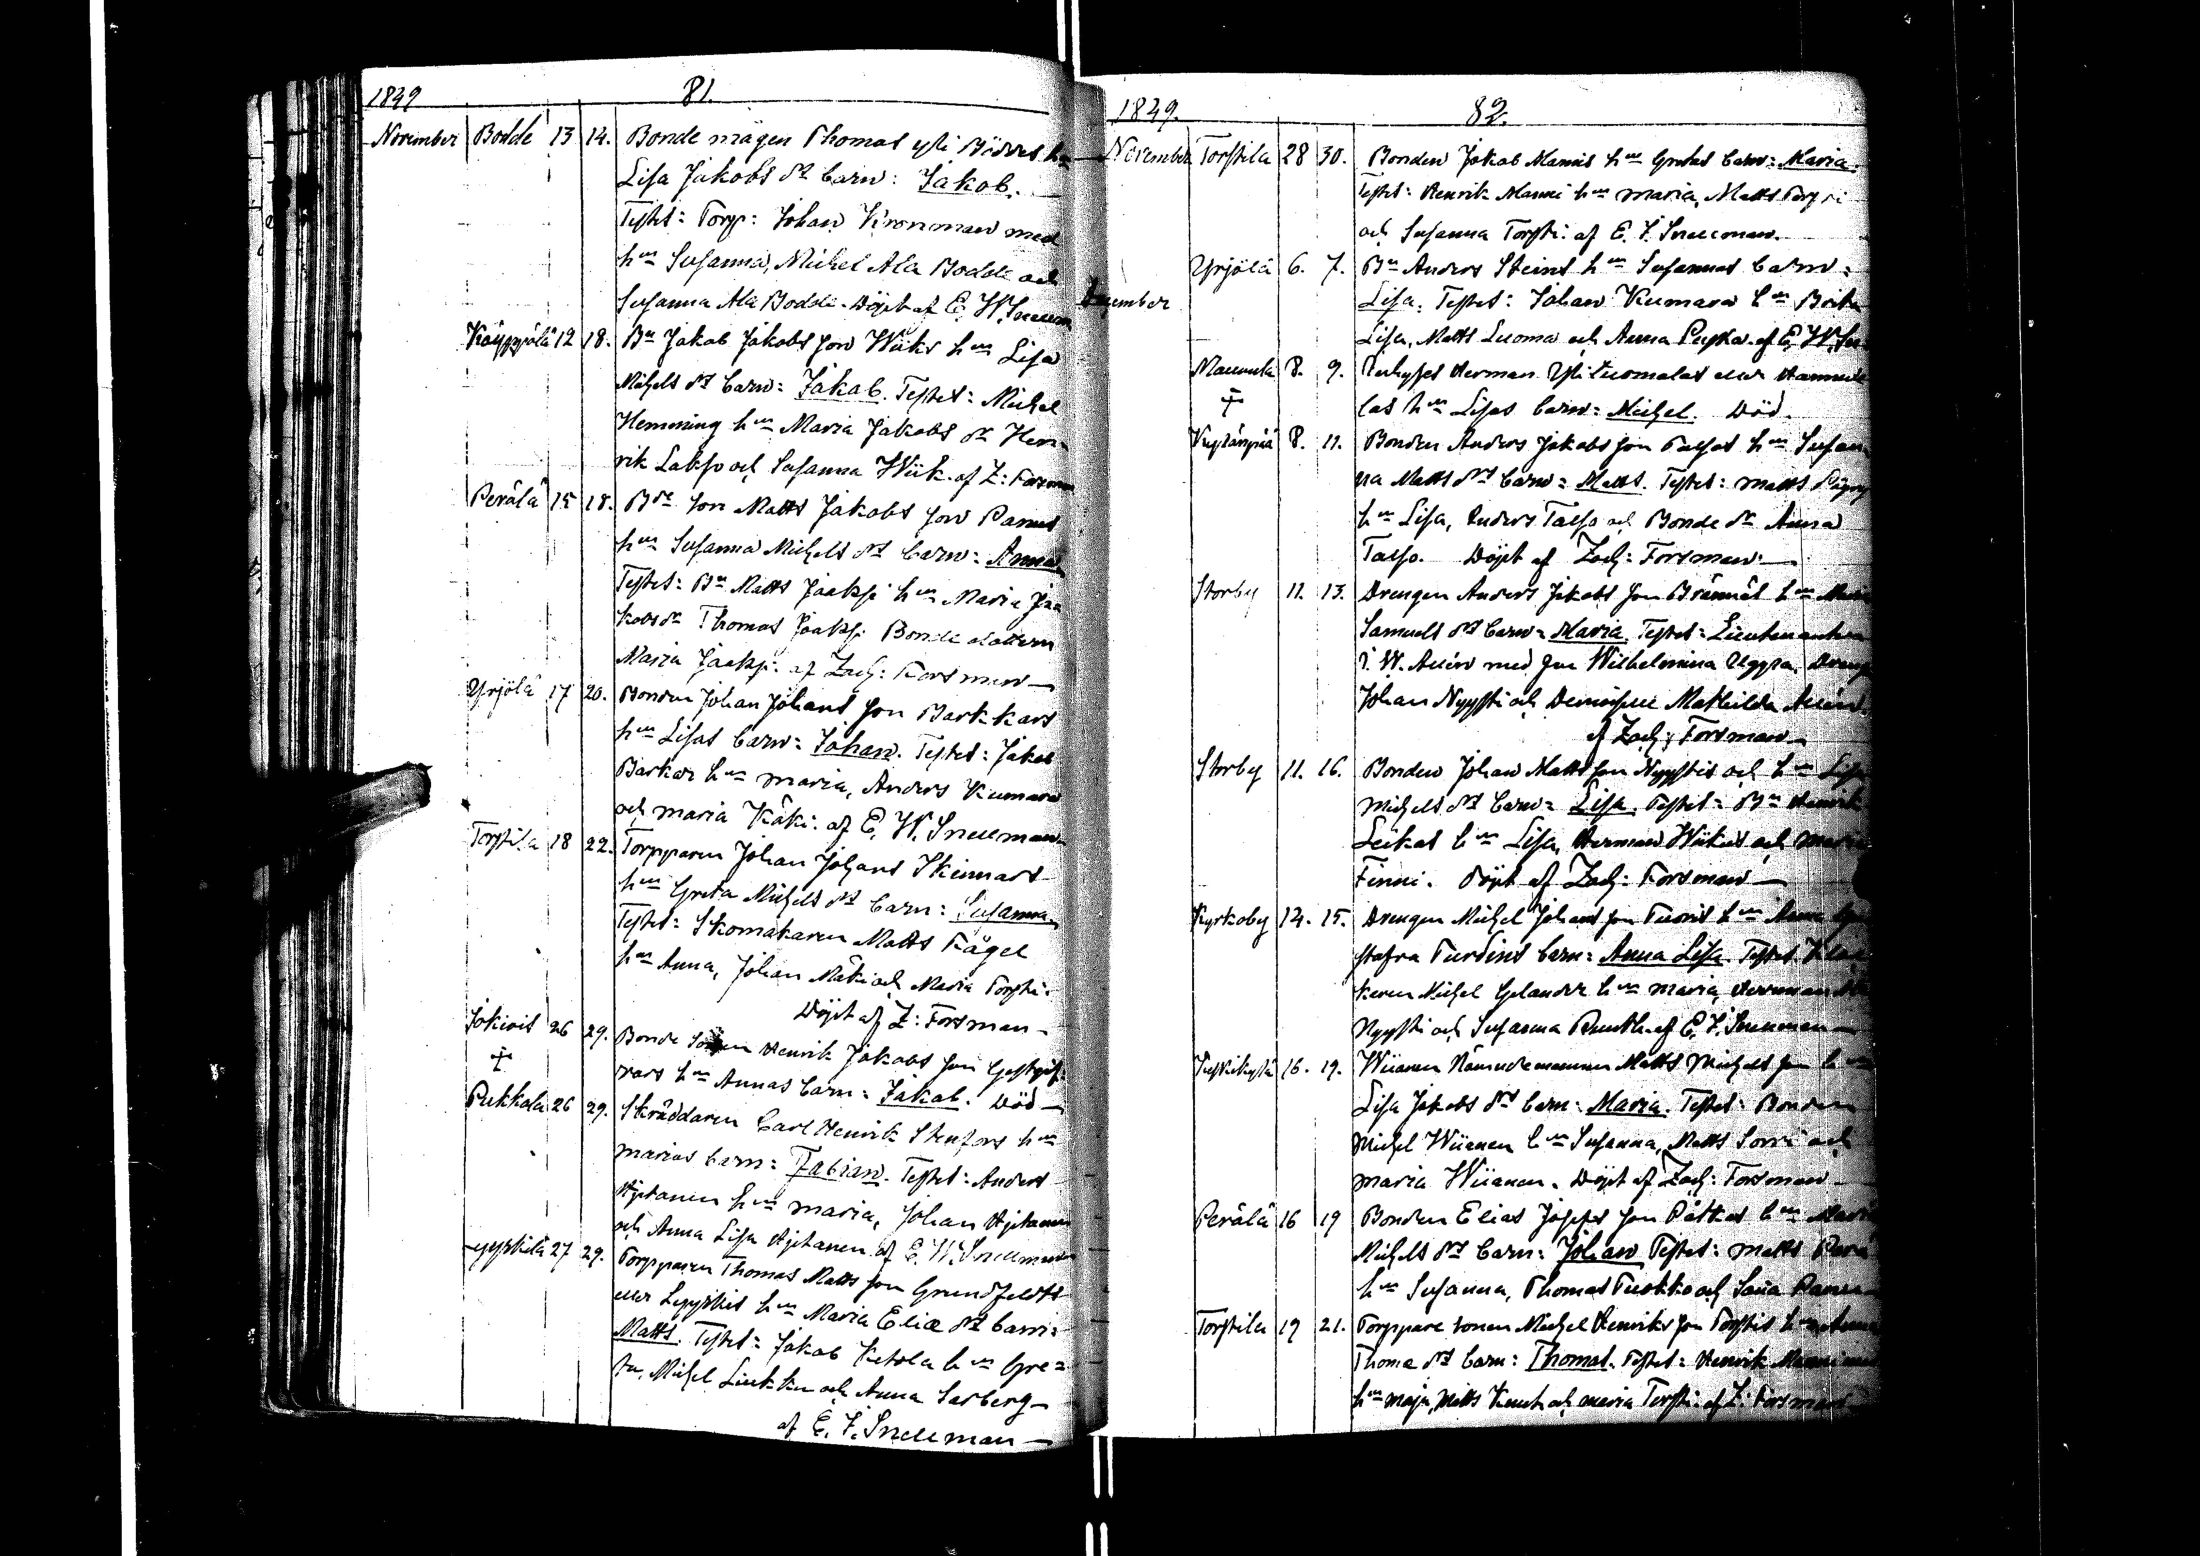 1849 81.
November Bodde 13 14. Bonde mågen Thomas yli Böddes h
Lisa Jakobs dr barn: Jakob.
Testes: Torp: Johan Kronman med
hu Susanna, Michel Ala Bodde och
Susanna Ala Bodde. Döpt af E. W. Snellm
Käyppälä 12 18. Bn Jakob Jakobs son Wiiks hu Lisa
Michels dr barn: Jakob. Testes: Michel
Hemming hu Maria Jakobs dr Hen-
rik Lakso och Susanna Wiik. af Z: Forsman
Perälä 15 18. Bde son Matts Jakobs son Panus
hu Susanna Michels dr barn: Anna
Testes: Bn Matts Jaaksi hu Maria Ja
kobs dr Thomas Jaaksi Bonde dottern
Maria Jaaksi. af Zach: Forsman
Yrjölä 17 20. Bonden Johan Johans son Barkkars
hu Lisas barn: Johan. Testes: Jakob
Barkar hu maria, Anders Kumara
och maria Käki. af E. W. Snellman
Torstila 18 22. Torpparen Johan Johans Skinnars
hu Greta Michels dr barn: Susanna
Testes: Skomakaren Matts Fågel
hu Anna, Johan Mäki och Maria Torsti.
Döpt af Z: Forsman
Jokiois 26 29. Bonde sonen Henrik Jakobs son Gästgif-
vars hu Annas barn: Jakob. Död
Pukkala 26 29. Skräddaren Carl Henrik Stenfors hu
marias barn: Fabian. Testes: Anders
hu maria, Johan
och Anna Lisa af E. W. Snellman
27 29. Torpparen Thomas Matts son Grundfeldts
eller Lyyskis hu Maria Eliæ dr barn:
Matts. Testes: Jakob Ketola hu Gre=
ta, Michel Liukku och Anna Sarberg
af E. J. Snellman
1849. 82.
November Torstila 28 30. Bonden Jakob Mannis hu Gretas barn: Maria.
Testes: Henrik Manni hu maria, Matts Torsti
och Susanna Torsti. af E. J. Snellman.
December Yrjölä 6. 7. Bn Anders Steins hu Susannas barn:
Lisa. Testes: Johan Kumara hu Brita
Lisa, Matts Luoma och Anna af E. W. Sn
8. 9. Herman Yli Tuomalas eller Hannuk
las hu Lisas barn: Michel. Död.
8. 11. Bonden Anders Jakobs son Talsos hu Susan-
na Matts dr barn: Matts. Testes: matts
hu Lisa, Anders Talso och Bonde dr Anna
Talso. Döpt af Zach: Forsman
Storby 11. 13. Drengen Anders Jakobs son Brännås hu Maria
Samuels dr barn: Maria. Testes: Lieutenanten
J. W. Aléen med fru Wilhelmina Uggla, Dreng
Johan Nyysti och Demoiselle Mathilda Aléen.
af Zach: Forsman
Storby 11. 16. Bonden Johan Matts son Nyystis och hu Lisa
Michels dr barn: Lisa. Testes: Bn Henrik
Leikas hu Lisa, Herman Wiikus och maria
Finni. Döpt af Zach: Forsman
Kyrkoby 14. 15. Drengen Michel Johans son Turris hu Anna
stafva Turdins barn: Anna Lisa. Testes: Kloc
karen Michel Gelander hu maria, Herman
Nyysti och Susanna af E. J. Snellman
16. 19. Wiianen Nämndemannen Matts Michels son hu
Lisa Jakobs dr barn: Maria. Testes: Bonden
Michel Wiianen hu Susanna, Matts Sorri och
maria Wiianen. Döpt af Zach: Forsman
Perälä 16 19 Bonden Elias Josefs son Pätkas hu Maria
Michels dr barn: Johan Testes: matts
hu Susanna, Thomas Turkko och
Torstila 19 21. Torppare sonen Michel Henriks son Torstis hu Anna
Thomæ dr barn: Thomas. Testes: Henrik Manni med
hu maja, Matts och maria Torsti. af Z: Forsman